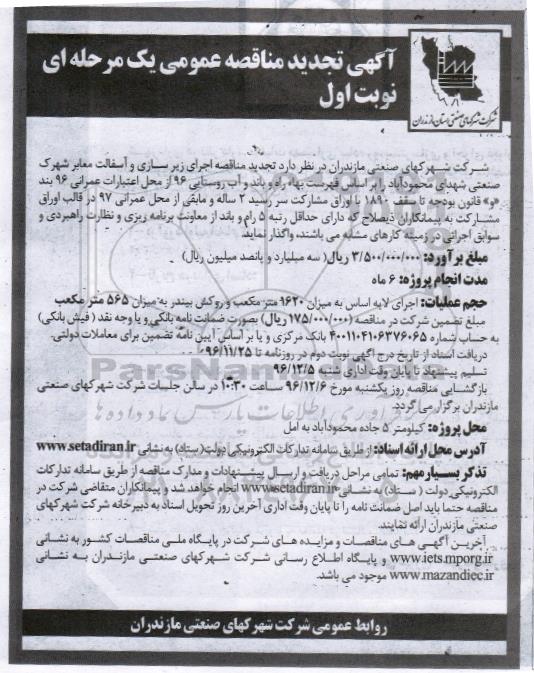 آگهی تجدید مناقصه عمومی یک مرحله ای
نوبت اول
شرکت شهرکهای صنعتی استان مازندران
شرکت شهرکهای صنعتی مازندران در نظر دارد تجدید مناقصه اجرای زیر سازی و آسفالت معابر شهرک
صنعتی شهدای محمودآباد را بر اساس فهرست بهاء راه و باند و آب روستایی ۹۶ از محل اعتبارات عمرانی ۹۶ بند
«و» قانون بودجه تا سقف ۱۸۹۰ با اوراق مشارکت سر رسید ۲ ساله و مابقی از محل عمرانی ۹۷ در قالب اوراق
مشارکت به پیمانکاران ذیصلاح که دارای حداقل رتبه ۵ رام و باند از معاونت برنامه ریزی و نظارت راهبردی و
سوابق اجرائی در زمینه کارهای مشابه می باشند، واگذار نماید.
مبلغ برآورد: ۳/۵۰۰/۰۰۰/۰۰۰ ریال( سه میلیارد و پانصد میلیون ریال)
مدت انجام پروژه: ۶ ماه
حجم عملیات: اجرای لایه اساس به میزان ۱۶۲۰ متر مکعب و روکش بیندر به میزان ۵۶۵ متر مکعب
مبلغ تضمین شرکت در مناقصه (۱۷۵/۰۰۰/۰۰۰ ریال) بصورت ضمانت نامه بانکی و یا وجه نقد ( فیش بانکی)
به حساب شماره ۴۰۰۱۱۰۴۱۰۶۳۷۶۰۶۵ بانک مرکزی و یا بر اساس آیین نامه تضمین برای معاملات دولتی.
دریافت اسناد از تاریخ درج آگهی نوبت دوم در روزنامه تا ۹۶/۱۱/۲۵
تسلیم پیشنهاد تا پایان وقت اداری شنبه ۹۶/۱۲/۵
بازگشایی مناقصه روز یکشنبه مورخ ۹۶/۱۲/۶ ساعت ۱۰:۳۰ در سالن جلسات شرکت شهرکهای صنعتی
مازندران برگزار می گردد.
محل پروژه: کیلومتر ۵ جاده محمودآباد به آمل
آدرس محل ارائه اسناد: از طریق سامانه تدارکات الکترونیکی دولت( ستاد) به نشانی www.setadiran.ir
تذکر بسیار مهم: تمامی مراحل دریافت و ارسال پیشنهادات و مدارک مناقصه از طریق سامانه تدارکات
الکترونیکی دولت ( ستاد) به نشانی www.setadiran.ir انجام خواهد شد و پیمانکاران متقاضی شرکت در
مناقصه حتما باید اصل ضمانت نامه را تا پایان وقت اداری آخرین روز تحویل اسناد به دبیرخانه شرکت شهرکهای
صنعتی مازندران ارائه نمایند.
آخرین آگهی های مناقصات و مزایده های شرکت در پایگاه ملی مناقصات کشور به نشانی
www.iets.mporg.ir و پایگاه اطلاع رسانی شرکت شهرکهای صنعتی مازندران به نشانی
www.mazandiec.ir موجود می باشد.
روابط عمومی شرکت شهرکهای صنعتی مازندران